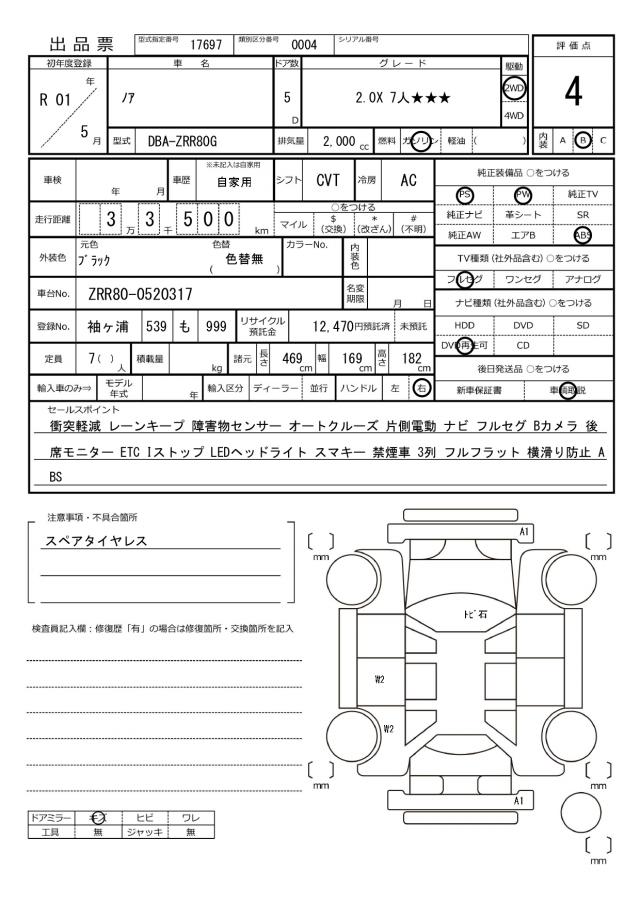 出品票 型式指定番号 17697 類別区分番号 0004 シリアル番号
評価点
4
初年度登録 車名 ドア数 グレード 駆動
R 01 年 5 月
ノア 5 D 2.0X 7人★★★ 2WD
4WD
型式 DBA-ZRR80G 排気量 2,000 cc 燃料 ガソリン 軽油 ( ) 内装 A B C
車検 年 月 車歴 ※未記入は自家用 自家用 シフト CVT 冷房 AC
走行距離 3 万 3 千 5 0 0 km
○をつける
マイル $(交換) *(改ざん) #(不明)
外装色 元色 ブラック 色替 ( 色替無 ) カラーNo. 内装色
車台No. ZRR80-0520317 名変期限 月 日
登録No. 袖ヶ浦 539 も 999 リサイクル預託金 12,470円預託済 未預託
定員 7( )人 積載量 kg 諸元 長さ 469 cm 幅 169 cm 高さ 182 cm
輸入車のみ⇒ モデル年式 年 輸入区分 ディーラー 並行 ハンドル 左 右
純正装備品 ○をつける
PS PW 純正TV
純正ナビ 革シート SR
純正AW エアB ABS
TV種類 (社外品含む) ○をつける
フルセグ ワンセグ アナログ
ナビ種類 (社外品含む) ○をつける
HDD DVD SD
DVD再生可 CD
後日発送品 ○をつける
新車保証書 車輌取説
セールスポイント
衝突軽減 レーンキープ 障害物センサー オートクルーズ 片側電動 ナビ フルセグ Bカメラ 後
席モニター ETC Iストップ LEDヘッドライト スマキー 禁煙車 3列 フルフラット 横滑り防止 A
BS
注意事項・不具合箇所
スペアタイヤレス
検査員記入欄：修復歴「有」の場合は修復箇所・交換箇所を記入
A1
mm mm
トビ石
W2
W2
mm mm
A1
mm
ドアミラー キズ ヒビ ワレ
工具 無 ジャッキ 無